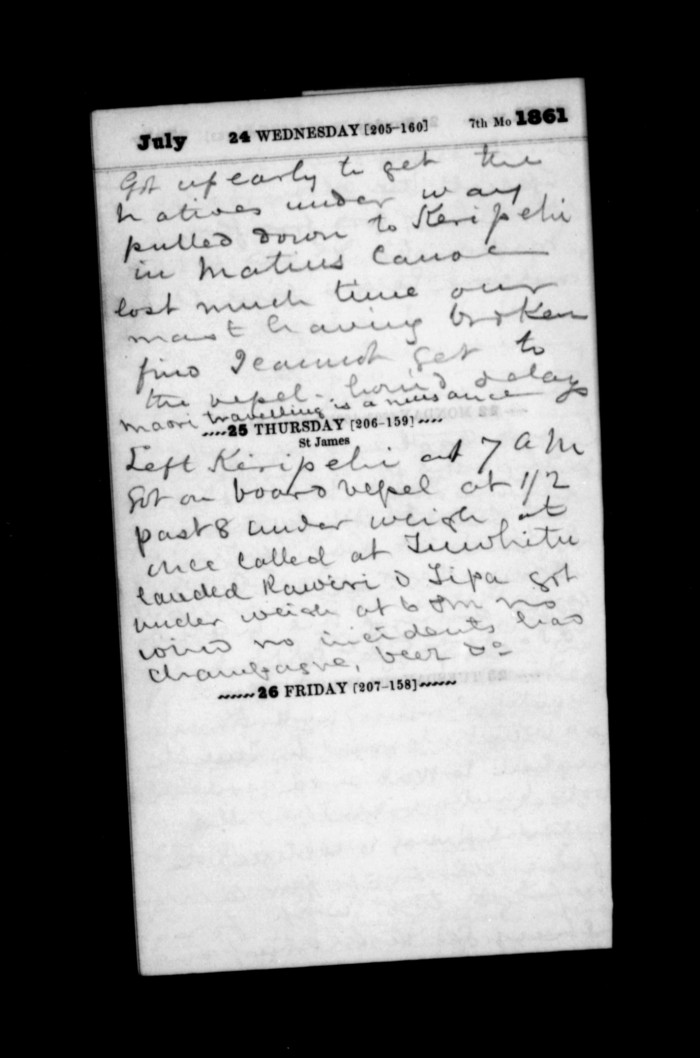 July 24 WEDNESDAY [205-160] 7th Mo 1861
Got up early to get the
natives under way
pulled down to Keripehi
in Matius Canoe
lost much time our
mast having broken
find I cannot get to
the vessel. horrid delays
maori travelling is a nuisance
25 THURSDAY [206-159]
St James
Left Keripehi at 7 A M
Got on board vessel at 1/2
past 8 under weigh at
once called at Tuwhitu
landed Rawiri & Tipa got
under weigh at 6 P m no
wind no incidents had
Champagne, beer &c
26 FRIDAY [207-158]